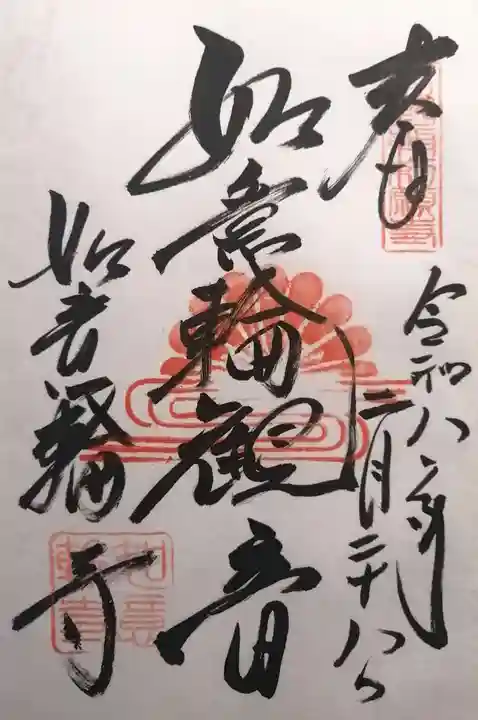 奉拝
令和八年
二月二十八日
如意輪観音
如意輪寺